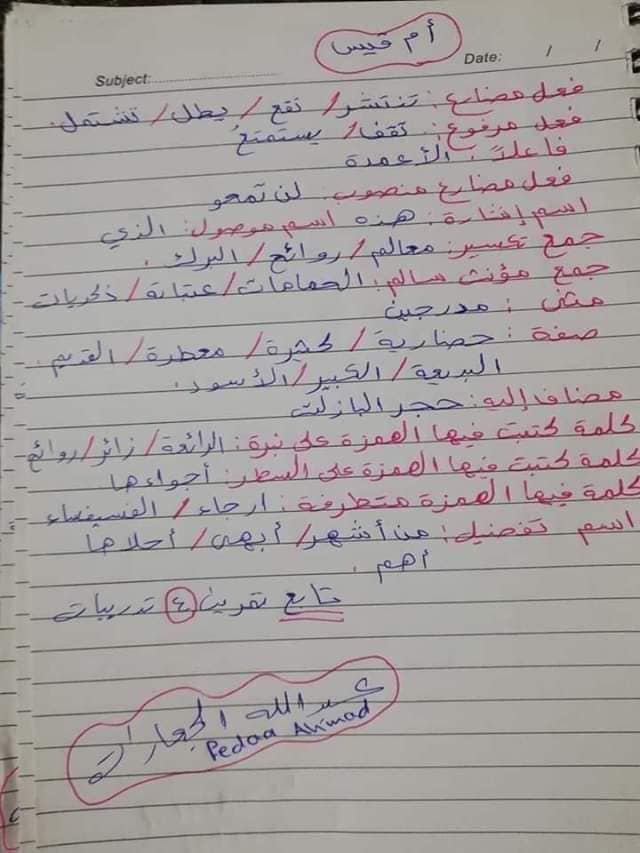 أم قيس
Subject: Date: / /
فعل مضارع: تنتشر/ تقع/ يطل/ تشتمل.
فعل مرفوع: تقف/ يستمتعُ
فاعلاً: الأعمدة
فعل مضارع منصوب: لن تمحو
اسم إشارة: هذه اسم موصول: الذي
جمع تكسير: معالم/ روائح/ البرك.
جمع مؤنث سالم: الحمامات/ عتبانة/ ذكريات
مثنى: مدرجين
صفة: حضارية/ كثيرة/ معطرة/ القديم.
البديعة/ الكبير/ الأسود.
مضاف إليه: حجر البازلت
كلمة كتبت فيها الهمزة على نبرة: الرائعة/ زائر/ روائح
كلمة كتبت فيها الهمزة على السطر: أجواءها
كلمة فيها الهمزة متطرفة: ارجاء/ الفسيفساء
اسم تفضيل: من أشهر/ أبهى/ أحلاها
أهم.
تابع تمرين ٤ تدريبات
عبدالله الجعارات
Pedaa Ahmad